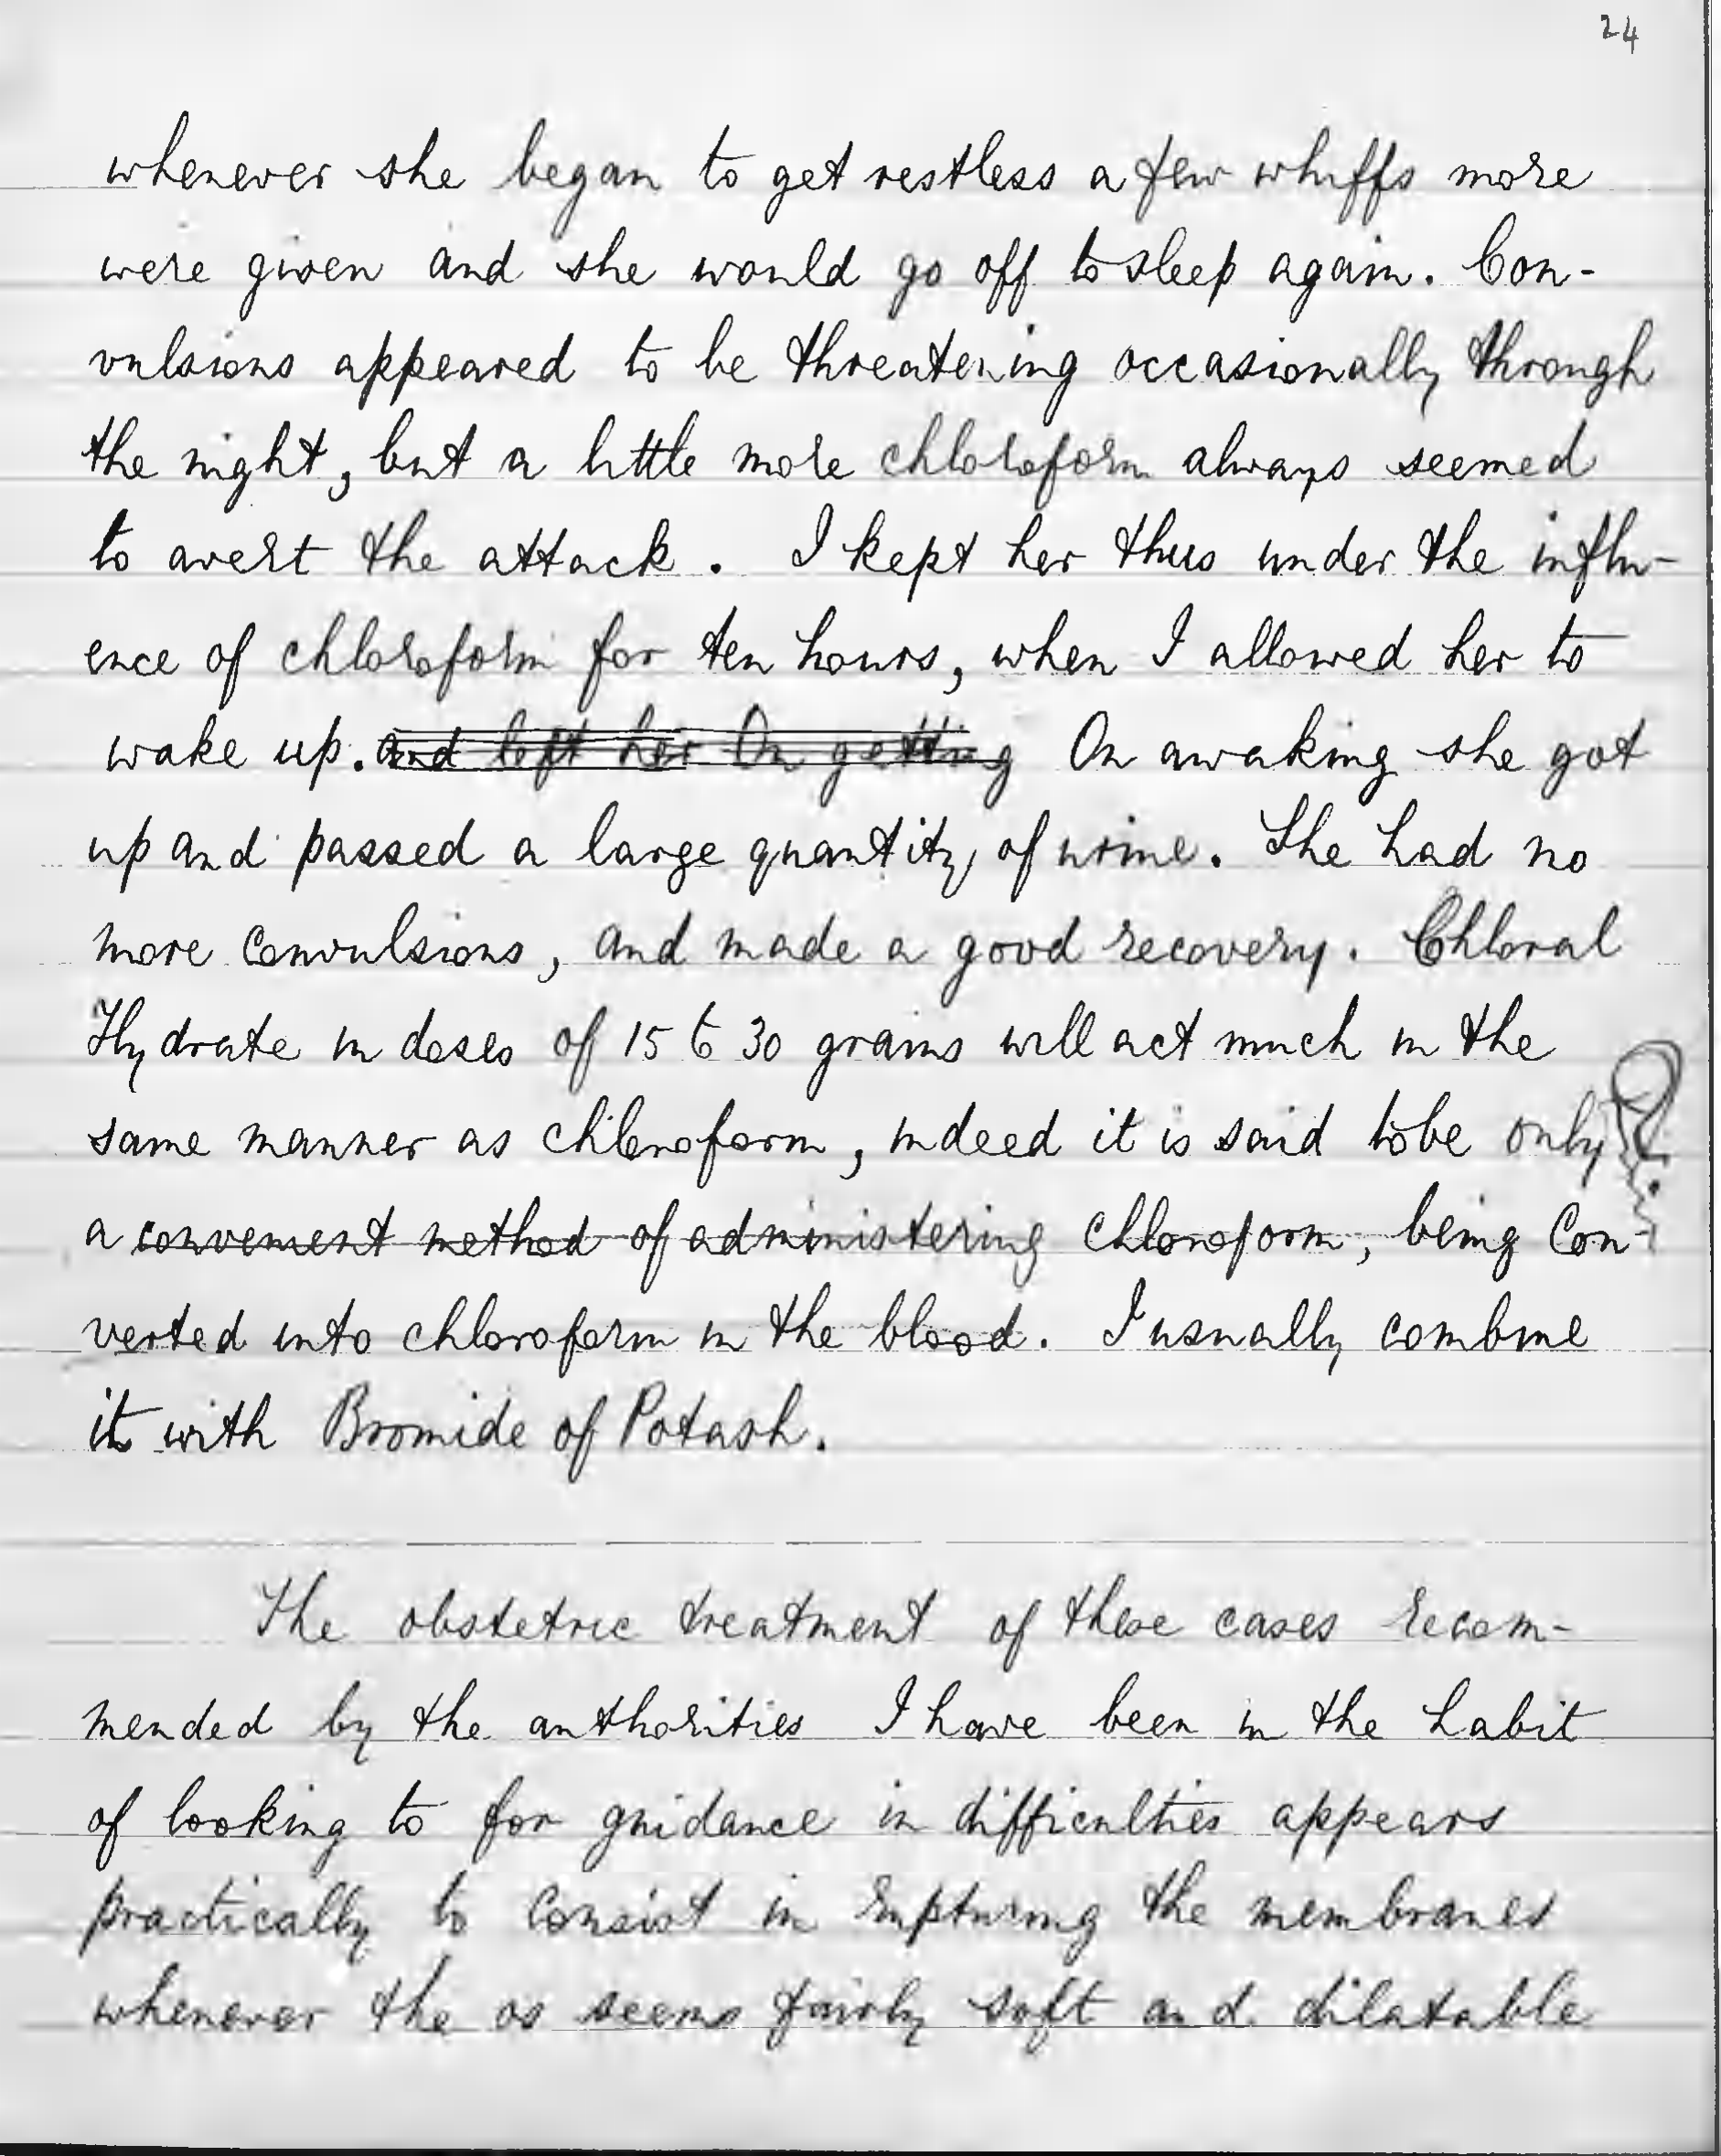 24
whenever she began to get restless a few whiffs more
were given and she would go off to sleep again. Con-
vulsions appeared to be threatening occasionally through
the night, but a little more chloroform always seemed
to avert the attack. I kept her thus under the influ-
ence of chloroform for ten hours, when I allowed her to
wake up. and left her On getting On awaking she got
up and passed a large quantity of urine. She had no
more convulsions, and made a good recovery. Chloral
Hydrate in doses of 15 to 30 grains will act much in the
same manner as chloroform, indeed it is said to be only
a convenient method of administering chloroform, being con-
verted into chloroform in the blood. I usually combine
it with Bromide of Potash.
The obstetric treatment of these cases recom-
mended by the authorities I have been in the habit
of looking to for guidance in difficulties appears
practically to consist in rupturing the membranes
whenever the os seems fairly soft and dilatable